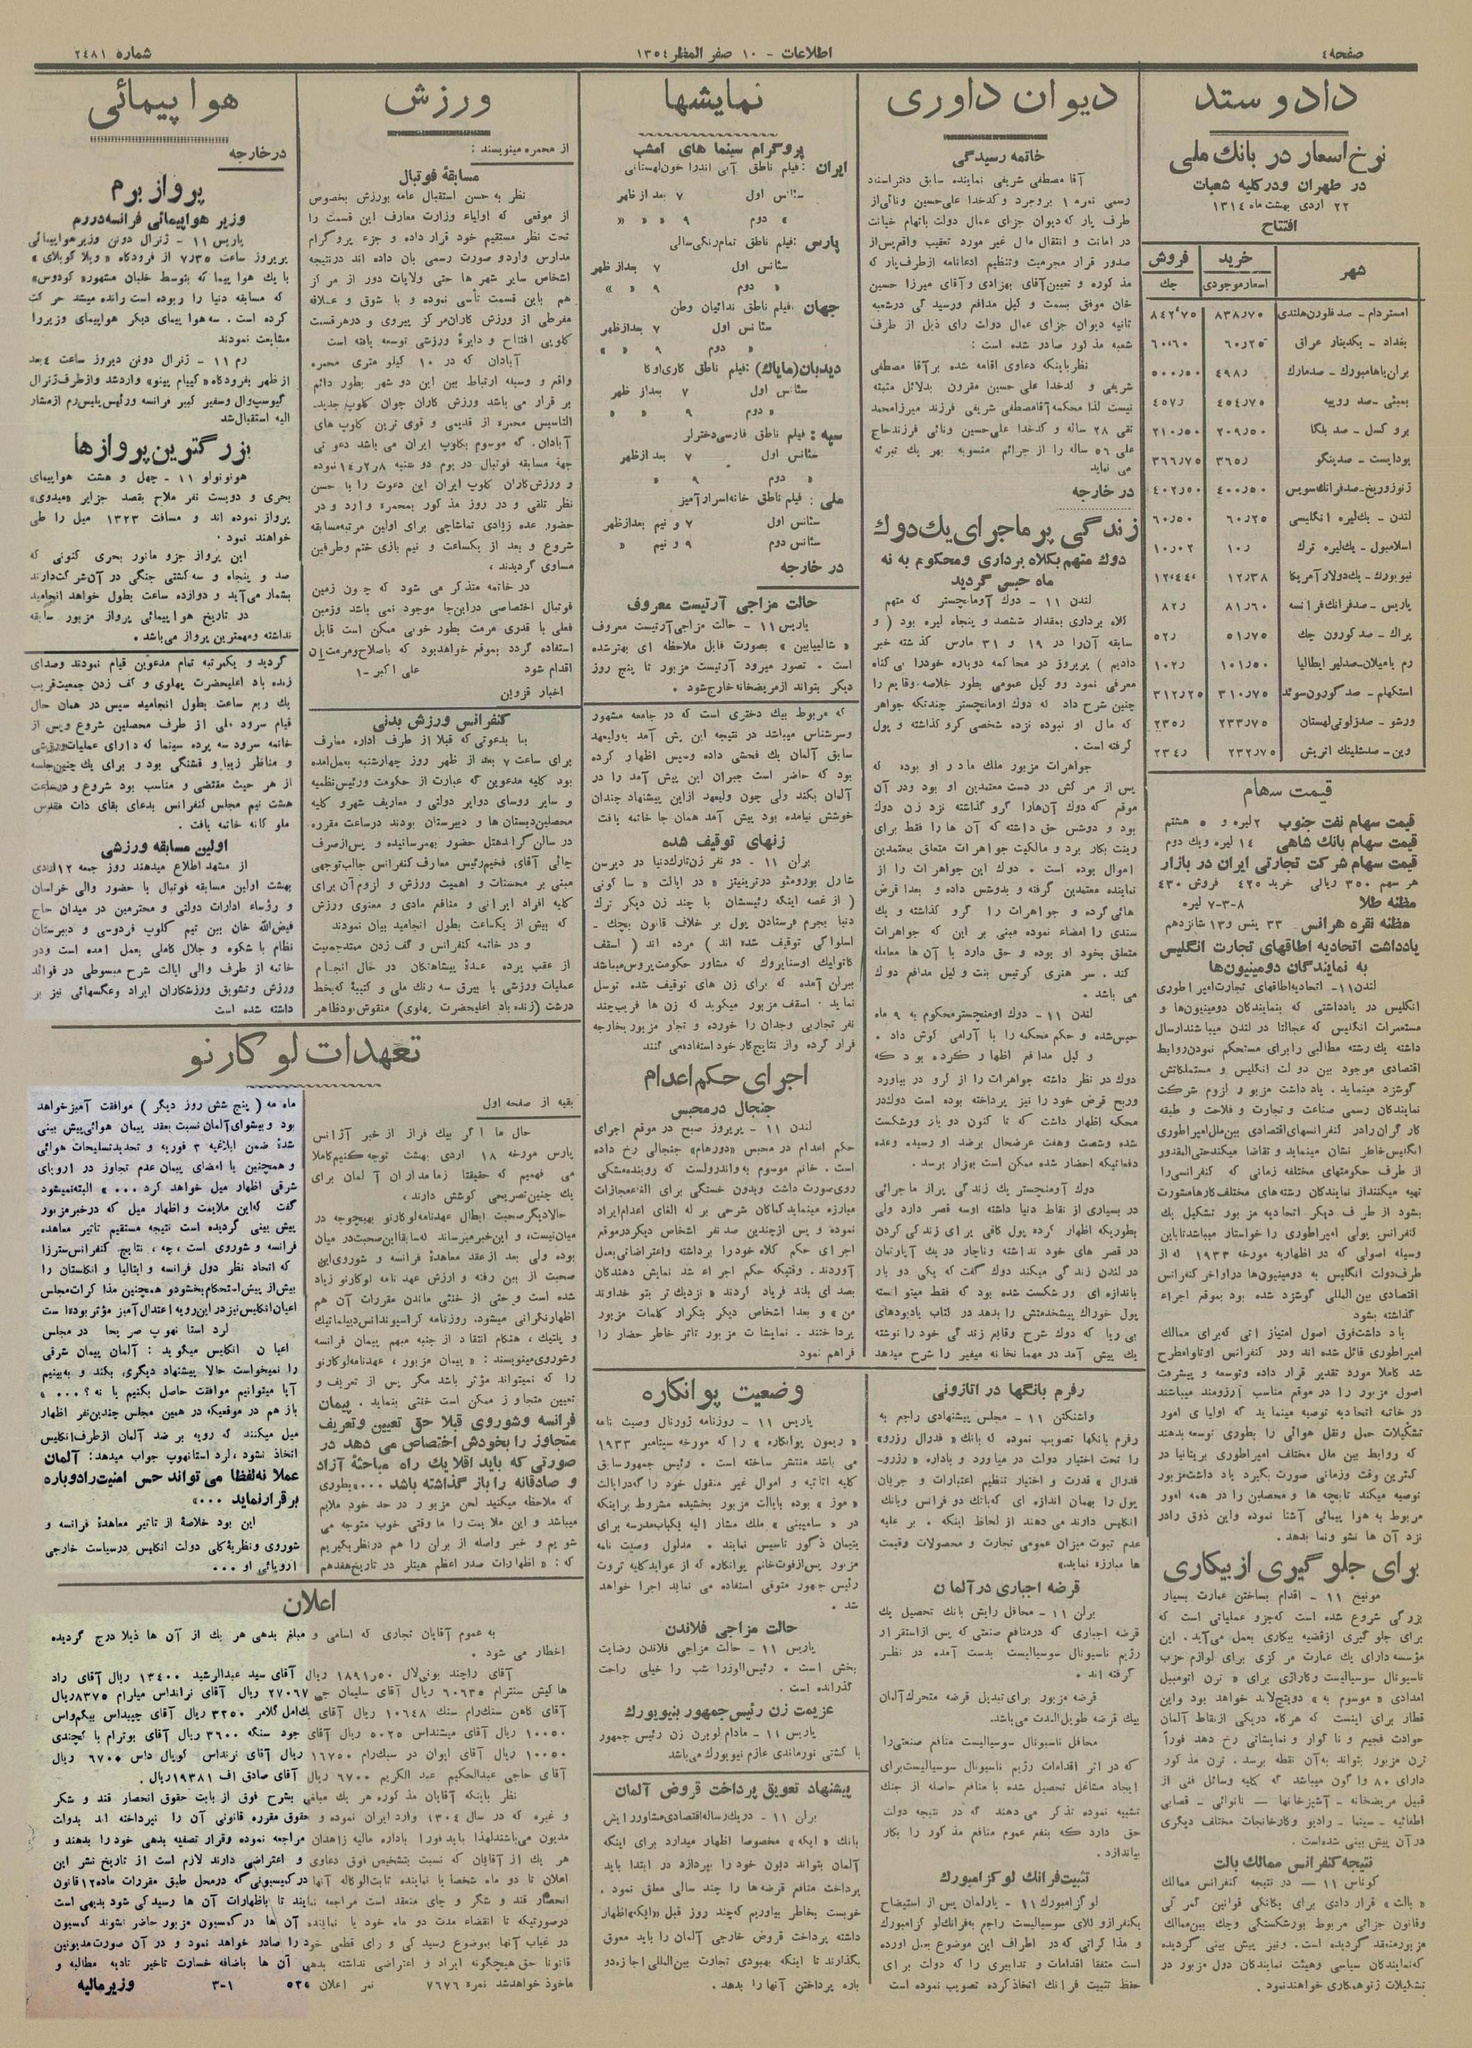 صفحه٤
اطلاعات - ١٠ صفر المظفر ١٣٥٤
شماره ٢٤٨١
داد وستد
نرخ اسعار در بانك ملی
در طهران ودر کلیه شعبات
٢٢ اردی بهشت ماه ١٣١٤
افتتاح
شهر خرید فروش
اسعار موجودی چك
امستردام - صد فلورن هلندی ٨٣٨٫٧٥ ٨٤٢٫٧٥
بغداد - یکدینار عراق ٦٠٫٢٥ ٦٠٫٦٠
برلن یاهامبورك - صدمارك ٤٩٨٫ ٥٠٠٫٥٠
بمبئی - صد روپیه ٤٥٤٫٧٥ ٤٥٧٫
بروکسل - صد بلگا ٢٠٩٫٥٠ ٢١٠٫٥٠
بوداپست - صدپنگو ٣٦٥٫ ٣٦٦٫٧٥
ژنوزوریخ - صدفرانك سویس ٤٠٠٫٥٠ ٤٠٢٫٥٠
لندن - یك لیره انگلیسی ٦٠٫٢٥ ٦٠٫٥٠
اسلامبول - یك لیره ترك ١٠٫ ١٠٫٠٢
نیویورك - یك دولار آمریکا ١٢٫٣٨ ١٢٫٤٤٠
پاریس - صدفرانك فرانسه ٨١٫٦٠ ٨٢٫
پراك - صد کورون چك ٥١٫٧٥ ٥٢٫
رم یامیلان - صدلیر ایطالیا ١٠١٫٥٠ ١٠٢٫
استکهلم - صد کورون سوئد ٣١٠٫٧٥ ٣١٢٫٢٥
ورشو - صدزلوتی لهستان ٢٣٣٫٧٥ ٢٣٥٫
وین - صدشلینك اتریش ٢٣٢٫٧٥ ٢٣٤٫
قیمت سهام
قیمت سهام نفت جنوب ٢ لیره و ٥ هشتم
قیمت سهام بانك شاهی ١٤ لیره ویك دوم
قیمت سهام شرکت تجارتی ایران در بازار
هر سهم ٣٥٠ ریالی خرید ٤٢٥ فروش ٤٣٠
مظنه طلا ٨-٣-٧ لیره
مظنه نقره هرانس ٣٣ پنس و١٣ شانزدهم
یادداشت اتحادیه اطاقهای تجارت انگلیس
به نمایندگان دومینیون‌ها
لندن ١١ - اتحادیه اطاقهای تجارت امپراطوری
انگلیس در یادداشتی که بنمایندگان دومینیون‌ها و
مستعمرات انگلیس که عجالتا در لندن میباشند ارسال
داشته یك رشته مطالبی را برای مستحکم نمودن روابط
اقتصادی موجود بین دولت انگلیس و مستملکاتش
گوشزد مینماید. یاد داشت مزبور لزوم شرکت
نمایندگان رسمی صناعت و تجارت و فلاحت و طبقه
کارگران رادر کنفرانسهای اقتصادی بین ملل امپراطوری
انگلیس خاطر نشان مینماید و تقاضا میکند حتی المقدور
از طرف حکومتهای مختلفه زمانی که کنفرانسی را
تهیه میکنند از نمایندگان رشته‌های مختلف کارها مشورت
بشود از طرف دیگر اتحادیه مزبور تشکیل یك
کنفرانس پولی امپراطوری را خواستار میباشد تا باین
وسیله اصولی که در اظهاریه مورخه ١٩٣٣ که از
طرف دولت انگلیس به دومینیون‌ها در اواخر کنفرانس
اقتصادی بین المللی گوشزد شده بود بموقع اجراء
گذاشته بشود
یاد داشت فوق اصول امتیازاتی که برای ممالك
امپراطوری قائل شده اند ودر کنفرانس اوتاوا مطرح
شد کاملا مورد تقدیر قرار داده وتوسعه و پیشرفت
اصول مزبور را در موقع مناسب آرزومند میباشند
در خاتمه اتحادیه توصیه مینماید که اولیای امور
تشکیلات حمل ونقل هوائی را بطوری توسعه بدهند
که روابط بین ملل مختلف امپراطوری بریتانیا در
کمترین وقت وزمانی صورت بگیرد یاد داشت مزبور
توصیه میکند تا بچه ها و محصلین را در همه امور
مربوط به هوا پیمائی آشنا نموده واین ذوق رادر
نزد آن ها نشو ونما بدهد.
برای جلوگیری از بیکاری
مونیخ ١١ - اقدام بساختن عمارت بسیار
بزرگی شروع شده است که جزو عملیاتی است که
برای جلوگیری ازقضیه بیکاری بعمل می‌آید. این
مؤسسه دارای یك عمارت مرکزی برای لوازم حزب
ناسیونال سوسیالیست وکاراژی برای « ترن اتومبیل
امدادی » موسوم به « دویتچ‌لاند خواهد بود واین
قطار برای اینست که هرگاه دریکی ازنقاط آلمان
حوادث فجیع و ناگوار و نمایشاتی رخ دهد فوراً
ترن مزبور بتواند به‌آن نقطه برسد. ترن مذکور
دارای ٨٠ واگون میباشد که کلیه وسائل فنی از
قبیل مریضخانه - آشپزخانها - نانوائی - قصابی
اطفائیه - سینما - رادیو وکارخانجات مختلف دیگری
در آن پیش بینی شده‌است.
نتیجه کنفرانس ممالك بالت
کوناس ١١ - در نتیجه کنفرانس ممالك
« بالت » قرار دادی برای یگانگی قوانین گمرکی
وقانون جزائی مربوط بورشکستگی وچك بین ممالك
مزبور منعقد گردیده است. ونیز پیش بینی گردیده
که نمایندگان سیاسی وهیئت نمایندگان دول مزبور در
تشکیلات ژنوهمکاری خواهند نمود.
دیوان داوری
خاتمه رسیدگی
آقا مصطفی شریفی نماینده سابق دفتر اسناد
رسمی نمره ١ بروجرد وکدخدا علی حسین ونائی از
طرف پارکه دیوان جزای عمال دولت باتهام خیانت
در امانت و انتقال مال غیر مورد تعقیب واقع پس از
صدور قرار مجرمیت وتنظیم ادعانامه ازطرف پارکه
مذکوره و تعیین آقای بهزادی و آقای میرزا حسین
خان موفق بسمت وکیل مدافع ورسیدگی درشعبه
ثانیه دیوان جزای عمال دولت رای ذیل از طرف
شعبه مذکور صادر شده است:
نظر باینکه دعاوی اقامه شده برآقا مصطفی
شریفی و کدخدا علی حسین مقرون بدلائل مثبته
نیست لذا محکمه آقامصطفی شریفی فرزند میرزامحمد
تقی ٢٨ ساله و کدخدا علی حسین ونائی فرزند حاج
علی ٥٦ ساله را از جرائم منسوبه بهر یك تبرئه
می نماید
در خارجه
زندگی پر ماجرای یك دوك
دوك متهم بکلاه برداری و محکوم به نه
ماه حبس گردید
لندن ١١ - دوك آومانچستر که متهم
کلاه برداری بمقدار ششصد و پنجاه لیره بود ( و
سابقه آن‌را در ١٩ و ٣١ مارس گذشته خبر
دادیم ) پریروز در محاکمه دوباره خودرا بی گناه
معرفی نمود رو کیل عمومی بطور خلاصه وقایع را
چنین شرح داد که دوك اومانچستر چندتکه جواهر
که مال او نبوده نزد شخصی گرو گذاشته و پول
گرفته است.
جواهرات مزبور ملك مادر او بوده که
پس از مرگش در دست معتمدین او بود ودر آن
موقع که دوك آن‌هارا گرو گذاشته نزد زن دوك
بود و دوشس حق داشته که آن ها را فقط برای
زینت بکار برد و مالکیت جواهرات متعلق بمعتمدین
اموال بوده است. دوك این جواهرات را از
نماینده معتمدین گرفته و بدوشس داده و بعدا قرض
هائی گرده و جواهرات را گرو گذاشته و یك
سندی را امضاء نموده مبنی بر این که جواهرات
متعلق بخود او بوده و حق دارد با آن‌ها معامله
کند. سر هنری کرتیس بنت وکیل مدافع دوك
می باشد.
لندن ١١ - دوك اومنچستر محکوم به ٩ ماه
حبس شده و حکم محکمه را با آرامی گوش داد.
وکیل مدافع اظهار کرده بود که
دوك در نظر داشته جواهرات را از گرو در بیاورد
وربح قرض خود را نیز پرداخته بوده است دوك
محکمه اظهار داشت که تا کنون دو بار ورشکست
شده وشصت وهفت عرضحال برضد او رسیده وعده
دفعاتیکه احضار شده ممکن است بهزار برسد.
دوك آومنچستر یك زندگی پراز ماجرائی
در بسیاری از نقاط دنیا داشته اوسه قصر دارد ولی
بطوریکه اظهار کرده پول کافی برای زندگی کردن
در قصر های خود نداشته وناچار در یك آپارتمان
در لندن زندگی میکند دوك گفت که یکی دو بار
باندازه ای ور شکست شده بود که فقط میتوانسته
پول خوراك پیشخدمتش را بدهد در کتاب یادبودهای
بی ریا که دوك شرح وقایع زندگی خود را نوشته
یك پیش آمد در مهمانخانه میفیر را شرح میدهد
رفرم بانگها در اتازونی
واشنگتن ١١ - مجلس پیشنهادی راجع به
رفرم بانکها تصویب نموده که بانك « فدرال رزرو»
را تحت اختیار دولت در میاورد و باداره « رزرو-
فدرال » قدرت و اختیار تنظیم اعتبارات و جریان
پول را بهمان اندازه ای که بانك دو فرانس وبانك
انگلیس دارند می دهند از لحاظ اینکه « بر علیه
عدم ثبوت میزان عمومی تجارت و محصولات وقیمت
ها مبارزه نماید»
قرضه اجباری در آلمان
برلن ١١ - محافل رایش بانك تحصیل یك
قرضه اجباری که درمنافع صنعتی که پس ازاستقرار
رژیم ناسیونال سوسیالیست بدست آمده در نظر
گرفته اند.
قرضه مزبور برای تبدیل قرضه متحرك آلمان
بیك قرضه طویل المدت می‌باشد.
محافل ناسیونال سوسیالیست منافع صنعتی را
که در اثر اقدامات رژیم ناسیونال سوسیالیست برای
ایجاد مشاغل تحصیل شده با منافع حاصله از جنك
تشبیه نموده تذکر می دهند که در نتیجه دولت
حق دارد که بنفع عموم منافع مذکور را بکار
بیاندازد.
تثبیت فرانك لوکزامبورك
لوکزامبورك ١١ - پارلمان پس از استیضاح
یکنفر وکلای سوسیالیست راجع به فرانك لوکزامبورك
و مذاکراتی که در اطراف این موضوع بعمل آورده
است متفقا اقدامات و تدابیری را که دولت برای
حفظ تثبیت فرانك اتخاذ کرده تصویب نموده است
نمایشها
پروگرام سینما های امشب
ایران: فیلم ناطق آبی اندرا خون لهستانی
سئانس اول ٧ بعد از ظهر
« دوم ٩ « «
پارس: فیلم ناطق تمام رنگی سالی
سئانس اول ٧ بعداز ظهر
« دوم ٩ « «
جهان: فیلم ناطق فدائیان وطن
سئانس اول ٧ بعدازظهر
« دوم ٩ « «
دیدبان(مایاك): فیلم ناطق کاری‌اوکا
سئانس اول ٧ بعداز ظهر
« دوم ٩ « «
سپه: فیلم ناطق فارسی دخترلر
سئانس اول ٧ بعدازظهر
« دوم ٩ «
ملی: فیلم ناطق خانه اسرار آمیز
سئانس اول ٧ و نیم بعدازظهر
سئانس دوم ٩ و نیم «
در خارجه
حالت مزاجی آرتیست معروف
پاریس ١١ - حالت مزاجی آرتیست معروف
« شالیپاپین » بصورت قابل ملاحظه ای بهتر شده
است. تصور میرود آرتیست مزبور تا پنج روز
دیگر بتواند ازمریضخانه خارج شود.
که مربوط بیك دختری است که در جامعه مشهور
وسرشناس میباشد در نتیجه این پش آمد به ولیعهد
سابق آلمان یك فحشی داده وسپس اظهار کرده
بود که حاضر است جبران این پیش آمد را در
آلمان بکند ولی چون ولیعهد ازاین پیشنهاد چندان
خوشش نیامده بود پیش آمد همان جا خاتمه یافت
زنهای توقیف شده
برلن ١١ - دو نفر زن تارك دنیا در دیرسن
شارل بورومئو درترینیتز « در ایالت « ساکونی
( از غصه اینکه رئیسشان با چند زن دیگر ترك
دنیا بجرم فرستادن پول بر خلاف قانون بچك -
اسلواکی توقیف شده اند ) مرده اند ( اسقف
کاتولیك اوسنابروك که مشاور حکومت پروس میباشد
ببرلن آمده که برای زن های توقیف شده توسل
نماید. اسقف مزبور میگوید که زن ها فریب چند
نفر تجار بی وجدان را خورده و تجار مزبور بخارجه
فرار گرده واز نتایج کار خود استفاده می کنند
اجرای حکم اعدام
جنجال در محبس
لندن ١١ - پریروز صبح در موقع اجرای
حکم اعدام در محبس «دورهام» جنجالی رخ داده
است. خانم موسوم به واندرولست که روبنده مشکی
روی صورت داشت وبدون خستگی برای الغاء مجازات
مبارزه مینماید کماکان شرحی بر له الغای اعدام ایراد
نموده و پس ازچندین صد نفر اشخاص دیگر درموقع
اجرای حکم کلاه خود را برداشته واعتراضاتی بعمل
آوردند. وقتیکه حکم اجراء شد نمایش دهندگان
بصدای بلند فریاد کردند « نزدیك تر بتو خداوند
من » و بعدا اشخاص دیگر بتکرار کلمات مزبور
پرداختند. نمایشات مزبور تاثر خاطر حضار را
فراهم نمود
وضعیت پوانکاره
پاریس ١١ - روزنامه ژورنال وصیت نامه
« ریمون پوانکاره » را که مورخه سپتامبر ١٩٣٣
می باشد منتشر ساخته است. رئیس جمهور سابق
کلیه اثاثیه و اموال غیر منقول خود را که درایالت
« موز » بوده بایالت مزبور بخشیده مشروط براینکه
در « سامپینی » ملك مشار الیه یکباب مدرسه برای
یتیمان ذکور تاسیس نمایند. مدلول وصیت نامه
مزبور پس ازفوت خانم پوانکاره که از عواید کلیه ثروت
رئیس جمهور متوفی استفاده می نماید اجرا خواهد
شد.
حالت مزاجی فلاندن
پاریس ١١ - حالت مزاجی فلاندن رضایت
بخش است. رئیس الوزرا شب را خیلی راحت
گذرانده است.
عزیمت زن رئیس جمهور بنیویورك
پاریس ١١ - مادام لوبرن زن رئیس جمهور
با کشتی نورماندی عازم نیویورك می‌باشد
پیشنهاد تعویق پرداخت قروض آلمان
برلن ١١ - دریك رساله اقتصادی مشاور ارایش
بانك « ایکه » مخصوصا اظهار میدارد برای اینکه
آلمان بتواند دیون خود را بپردازد در ابتدا باید
پرداخت منافع قرضه‌ها را چند سالی معلق نمود.
خوبست بخاطر بیاوریم که چند روز قبل «ایکه» اظهار
داشته پرداخت قروض خارجی آلمان را باید معوق
بگذارند تا اینکه بهبودی تجارت بین المللی اجازه دو
باره پرداختن آنها را بدهد.
ورزش
از محمره مینویسند:
مسابقه فوتبال
نظر به حسن استقبال عامه بورزش بخصوص
از موقعی که اولیاء وزارت معارف این قسمت را
تحت نظر مستقیم خود قرار داده و جزء پروگرام
مدارس وارد و صورت رسمی بان داده اند درنتیجه
اشخاص سایر شهر ها حتی ولایات دور از مرکز
هم باین قسمت تأسی نموده و با شوق و علاقه
مفرطی از ورزش کاران مرکز پیروی و درهر قسمت
کلوپی افتتاح و دایرهٔ ورزشی توسعه یافته است
آبادان که در ١٠ کیلو متری محمره
واقع و وسیله ارتباط بین این دو شهر بطور دائم
بر قرار می باشد ورزش کاران جوان کلوپ جدید-
التاسیس محمره از قدیمی و قوی ترین کلوپ های
آبادان. که موسوم بکلوپ ایران می باشد دعوتی
جهة مسابقه فوتبال در یوم دو شنبه ١٤٫٢٫٨ نموده
و ورزش کاران کلوپ ایران این دعوت را با حسن
نظر تلقی و در روز مذکور بمحمره وارد و در
حضور عده زیادی تماشاچی برای اولین مرتبه مسابقه
شروع و بعد از یکساعت و نیم بازی ختم وطرفین
مساوی گردیدند،
در خاتمه متذکر می شود که چون زمین
فوتبال اختصاصی در این‌جا موجود نمی باشد وزمین
فعلی با قدری مرمت بطور خوبی ممکن است قابل
استفاده گردد بموقع خواهد بود که باصلاح ومرمت ان
اقدام شود علی اکبر - ١
اخبار قزوین
کنفرانس ورزش بدنی
بنا بدعوتی که قبلا از طرف اداره معارف
برای ساعت ٧ بعد از ظهر روز چهارشنبه بعمل آمده
بود کلیه مدعوین که عبارت از حکومت ورئیس نظمیه
و سایر روسای دوایر دولتی و معاریف شهر و کلیه
محصلین دبستان ها و دبیرستان بودند درساعت مقرره
در سالن گراندهتل حضور بهمرسانیده و پس ازصرف
چائی آقای فخیم رئیس معارف کنفرانس جالب توجهی
مبنی بر محسنات و اهمیت ورزش و لزوم آن برای
کلیه افراد ایرانی و منافع مادی و معنوی ورزش
که بیش از یکساعت بطول انجامید بیان نمودند
و در خاتمه کنفرانس و کف زدن ممتد جمعیت
از عقب پرده عدهٔ پیشاهنگان در حال انجام
عملیات ورزشی با بیرق سه رنگ ملی و کتیبهٔ که بخط
درشت (زنده باد اعلیحضرت پهلوی) منقوش بود ظاهر
هواپیمائی
در خارجه
پرواز برم
وزیر هواپیمائی فرانسه در رم
پاریس ١١ - ژنرال دونن وزیر هواپیمائی
پریروز ساعت ٧٫٣٥ از فرودگاه « ویلا کوبلای »
با یك هوا پیما که بتوسط خلبان مشهور« کودوس»
که مسابقه دنیا را ربوده است رانده میشد حرکت
کرده است. سه‌هوا پیمای دیگر هواپیمای وزیررا
مشایعت نمودند
رم ١١ - ژنرال دونن دیروز ساعت ٤ بعد
از ظهر بفرودگاه « کیپام پینو» وارد شد و ازطرف ژنرال
گیوسپ وال وسفیر کبیر فرانسه ورئیس پلیس رم ازمشار
الیه استقبال شد
بزرگترین پروازها
هونونولو ١١ - چهل و هشت هواپیمای
بحری و دویست نفر ملاح بقصد جزایر «میدوی»
پرواز نموده اند و مسافت ١٣٢٣ میل را طی
خواهند نمود.
این پرواز جزو مانور بحری کنونی که
صد و پنجاه و سه کشتی جنگی در آن شرکت دارند
بشمار می‌آید و دوازده ساعت بطول خواهد انجامید
در تاریخ هواپیمائی پرواز مزبور سابقه
نداشته ومهمترین پرواز می‌باشد.
گردید و یکمرتبه تمام مدعوین قیام نمودند وصدای
زنده باد اعلیحضرت پهلوی و کف زدن جمعیت قریب
یك ربع ساعت بطول انجامید سپس در همان حال
قیام سرود ملی از طرف محصلین شروع وپس از
خاتمه سرود سه پرده سینما که دارای عملیات ورزشی
و مناظر زیبا و قشنگی بود و برای یك چنین جلسه
از هر حیث مقتضی و مناسب بود شروع و درساعت
هشت نیم مجلس کنفرانس بدعای بقای ذات مقدس
ملوکانه خاتمه یافت.
اولین مسابقه ورزشی
از مشهد اطلاع میدهند روز جمعه ١٢ اردی
بهشت اولین مسابقه فوتبال با حضور والی خراسان
و رؤساء ادارات دولتی و محترمین در میدان حاج
فیض الله خان بین تیم کلوپ فردوسی و دبیرستان
نظام با شکوه و جلال کاملی بعمل آمده است ودر
خاتمه از طرف والی ایالت شرح مبسوطی در فوائد
ورزش وتشویق ورزشکاران ایراد وعکسهائی نیز بر
داشته شده است
تعهدات لوکارنو
بقیه از صفحه اول
حال ما اگر بیك فراز از خبر آژانس
پارس مورخه ١٨ اردی بهشت توجه کنیم کاملا
می فهمیم که حقیقتا زمامداران آلمان برای
یك چنین تصریحی کوشش دارند،
حالا دیگر صحبت ابطال عهدنامه لوکارنو بهیچوجه در
میان نیست، و این خبر میرساند که سابقا این صحبت در میان
بوده ولی بعد ازعقد معاهدهٔ فرانسه و شوروی این
صحبت از بین رفته و ارزش عهد نامه لوکارنو زیاد
شده است و حتی از خنثی ماندن مقررات آن هم
اظهار نگرانی میشود، روزنامه کراسپوندانس دیپلماتیك
و پلتیك، هنگام انتقاد از جنبه مبهم پیمان فرانسه
وشوروی مینویسند: « پیمان مزبور، عهدنامه لوکارنو
را که نمیتواند مؤثر باشد مگر پس از تعریف و
تعیین متجاوز ممکن است خنثی بنماید. پیمان
فرانسه وشوروی قبلا حق تعیین وتعریف
متجاوز را بخودش اختصاص می دهد در
صورتی که باید اقلا یك راه مباحثهٔ آزاد
و صادقانه را باز گذاشته باشد ....» بطوری
که ملاحظه میکنید لحن مزبور در حد خود ملایم
میباشد و این ملایمت را ما وقتی خوب متوجه می
شویم و خبر واصله از برلن را هم درنظر بگیریم
که: « اظهارات صدر اعظم هیتلر در تاریخ هفدهم
ماه مه ( پنج شش روز دیگر ) موافقت آمیز خواهد
بود و پیشوای آلمان نسبت بعقد پیمان هوائی پیش بینی
شدهٔ ضمن ابلاغیه ٣ فوریه و تحدید تسلیحات هوائی
و همچنین با امضای پیمان عدم تجاوز در اروپای
شرقی اظهار میل خواهد کرد...» البته نمیشود
گفت که این ملایمت و اظهار میل که در خبر مزبور
پیش بینی گردیده است نتیجه مستقیم تاثیر معاهده
فرانسه و شوروی است، چه، نتایج کنفرانس سترزا
که اتحاد نظر دول فرانسه و ایتالیا و انگلستان را
بیش از پیش استحکام بخشود و همچنین مذاکرات مجلس
اعیان انگلیس نیز در این رویه اعتدال آمیز مؤثر بوده است
لرد استانهوپ صریحا در مجلس
اعیان انگلیس میگوید: آلمان پیمان شرقی
را نمیخواست حالا پیشنهاد دیگری بکند و به‌بینیم
آیا میتوانیم موافقت حاصل بکنیم یا نه؟... »
باز هم در موقعیکه در همین مجلس چندین نفر اظهار
میل میکنند که رویه بر ضد آلمان ازطرف انگلیس
اتخاذ نشود، لرد استانهوپ جواب میدهد: آلمان
عملا نه لفظا می تواند حس امنیت را دوباره
برقرار نماید ...»
این بود خلاصهٔ از تاثیر معاهدهٔ فرانسه و
شوروی و نظریهٔ کلی دولت انگلیس در سیاست خارجی
اروپائی او ...
اعلان
به عموم آقایان تجاری که اسامی و مبلغ بدهی هر یك از آن ها ذیلا درج گردیده
اخطار می شود.
آقای راچند بونی‌لال ١٨٩١٫٥٠ ریال آقای سید عبدالرشید ١٣٤٠٠ ریال آقای راد
هاکیش سنترام ٦٠٦٣٥ ریال آقای سلیمان جی ٢٧٠٦٧ ریال آقای نرانداس میارام ٨٣٧٥ریال
آقای کاهن سنك‌رام سنك ١٠٦٤٨ ریال آقای یك‌امل گلامر ٣٢٥٠ ریال آقای چیپداس بیکم‌واس
١٠٠٥٠ ریال آقای میشنداس ٥٠٢٥ ریال آقای جود سنگه ٣٦٠٠ ریال آقای بوترام با کچندی
١٠٠٥٠ ریال آقای ایوان در سبك‌رام ١٦٧٥٠ ریال آقای نرنداس کوپال داس ٦٧٠٠ ریال
آقای حاجی عبدالحکیم عبد الکریم ٦٧٠٠ ریال آقای صادق اف ١٩٣٨١ریال.
نظر باینکه آقایان مذکوره هر یك مبلغی بشرح فوق از بابت حقوق انحصار قند و شکر
و غیره که در سال ١٣٠٤ وارد ایران نموده و حقوق مقرره قانونی آن را نپرداخته اند بدولت
مدیون می‌باشند لهذا باید فورا باداره مالیه زاهدان مراجعه نموده و قرار تصفیه بدهی خود را بدهند و
هر یك از آقایان که نسبت بتشخیص فوق دعاوی و اعتراضی دارند لازم است از تاریخ نشر این
اعلان تا دو ماه شخصا یا نماینده ثابت الوکاله آنها در کمیسیونی که در محل طبق مقررات ماده ١٢ قانون
انحصار قند و شکر و چای منعقد است مراجعه نمایند تا باظهارات آن ها رسیدگی شود بدیهی است
درصورتیکه تا انقضاء مدت دو ماه خود یا نماینده آن ها در کمسیون مزبور حاضر نشوند کمسیون
در غیاب آنها بموضوع رسیدگی و رای قطعی خود را صادر خواهد نمود و در آن صورت مدیونین
قانونا حق هیچگونه ایراد و اعتراضی نداشته بدهی آن ها باضافه خسارت تاخیر تادیه مطالبه و
ماخوذ خواهد شد نمره ٧٦٧٦ نمره اعلان ٥٢٥ ١-٣ وزیر مالیه